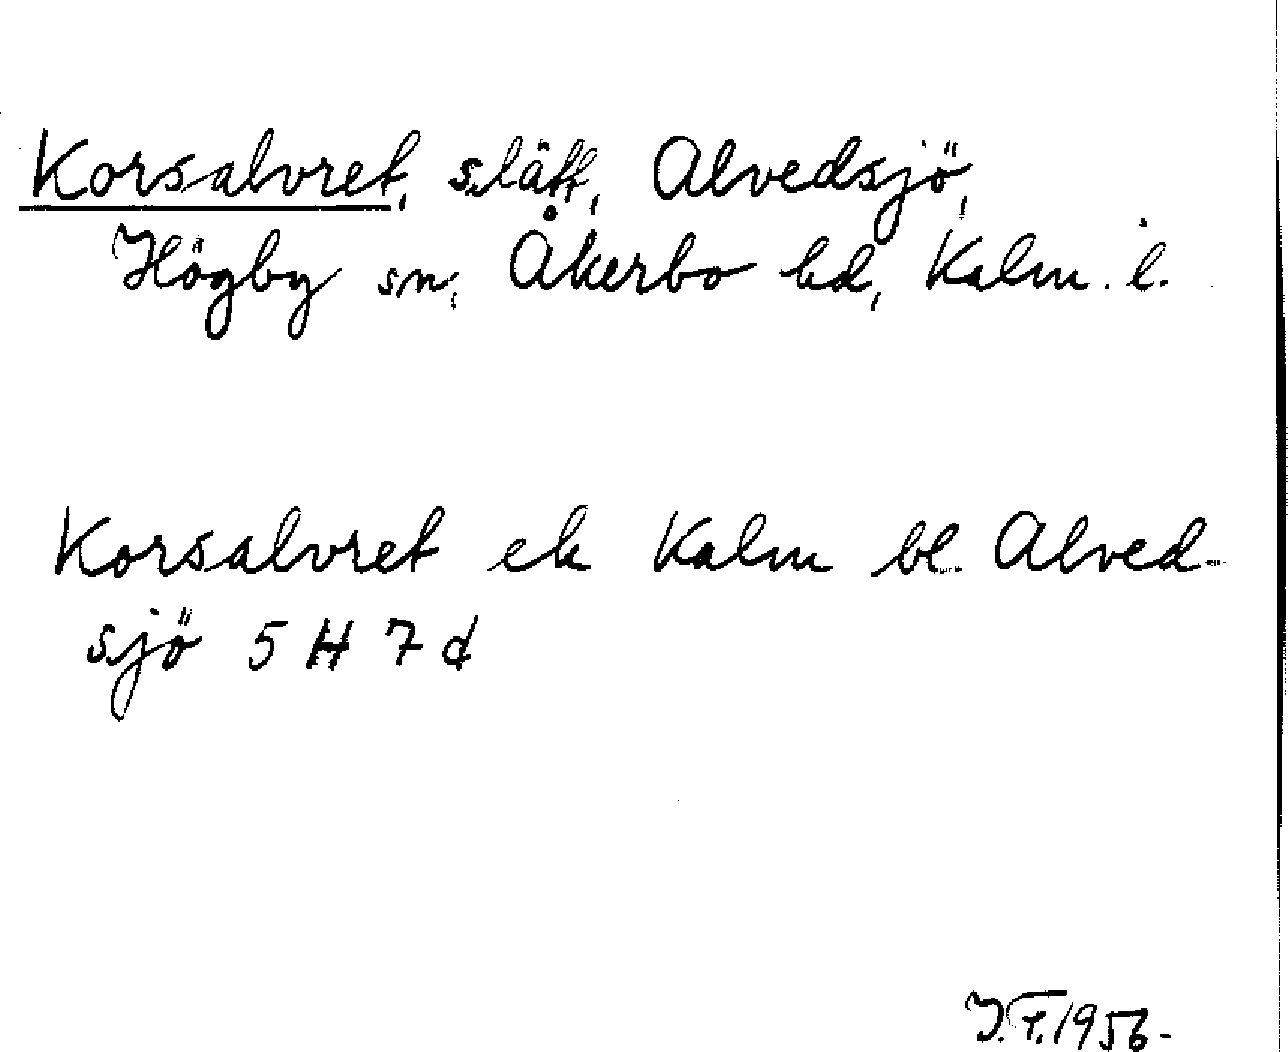 Korsalvret, slätt, Alvedsjö,
Högby sn, Åkerbo hd, Kalm. l.
Korsalvret ek Kalm bl. Alved-
sjö 5 H 7 d
J.F. 1956.